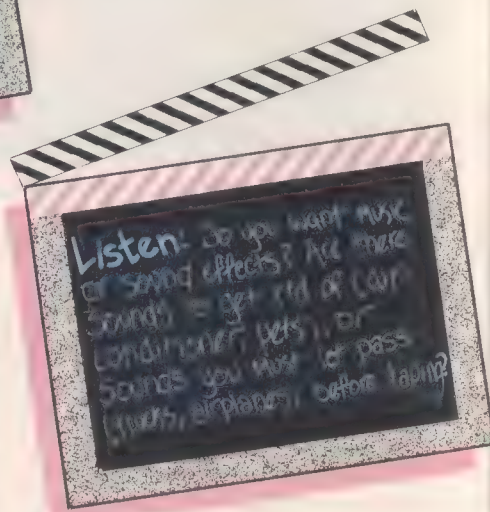 Listen: Do you want music
or sound effects? Are there
sounds to get rid of (air
conditioner, pets), or
sounds you must let pass
(trucks, airplanes), before taping?